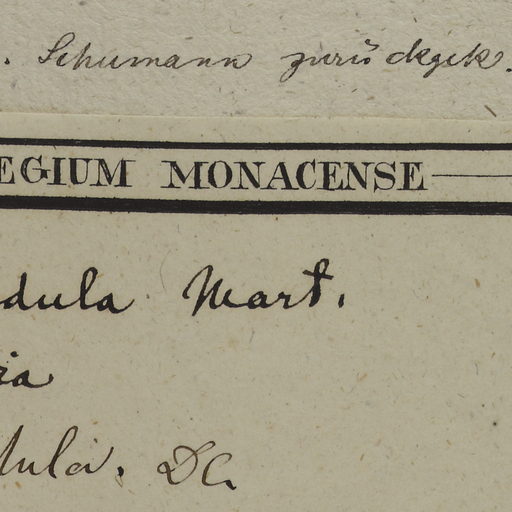 . Schumann zurückgek.
EGIUM MONACENSE
dula Mart.
ia
dula. DC.